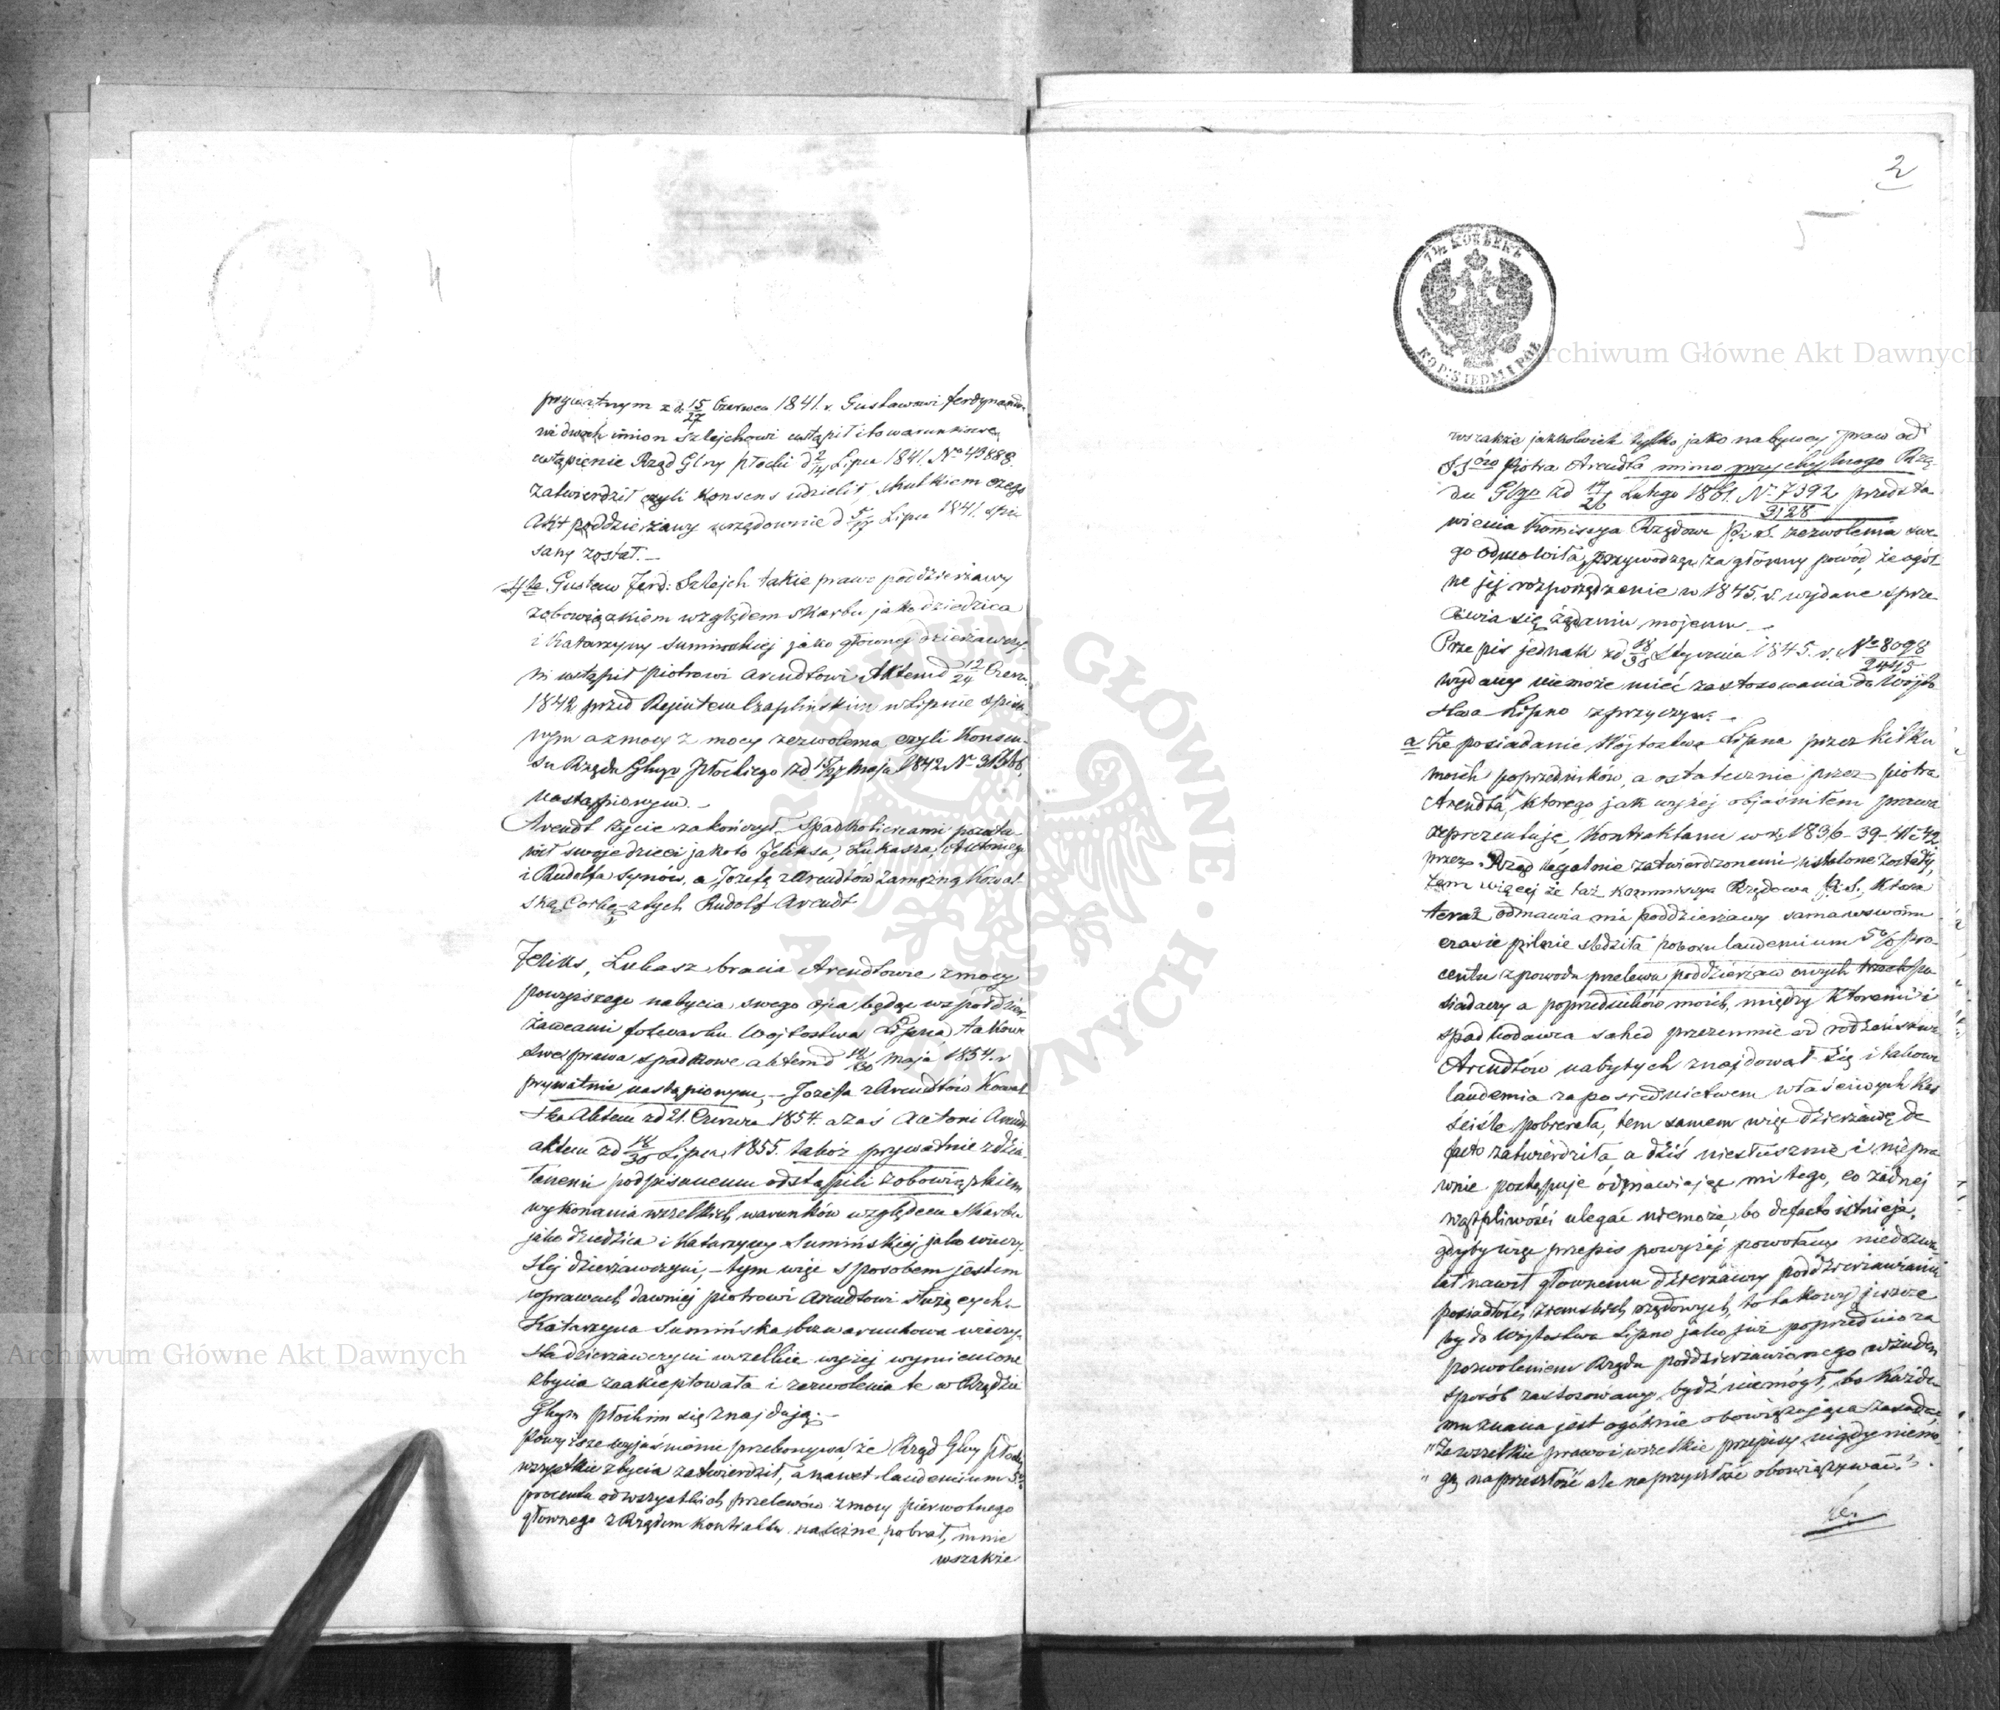 4
prywatnym z d. 15/27 Czerwca 1841. r. Gustawowi Ferdynando-
wi dwoch imion Szlejchowi ustąpił i to warunkowe
ustąpienie Rząd Glny Płocki d 2/14 Lipca 1841. No 49888.
zatwierdził czyli Konsens udzielił, skutkiem czego
Akt poddzierżawy urzędownie d 5/17 Lipca 1841. spi-
sany został.—
4te Gustaw Ferd: Szlejch takie prawo poddzierżawy
zobowiązkiem względem skarbu jako dziedzica
i Katarzyny Sumińskiej jako głównej dzierżawczy-
ni ustąpił Piotrowi Arendtowi Aktem d 12/24 Czerw.
1842 przed Rejentem Czaplińskim w Lipnie spisa-
nym a z mocy zezwolenia czyli Konsen-
su Rządu Glnego Płockiego zd 15/27 Maja 1842 No
nastąpionym.—
Arendt życie zakończył. Spadkobiercami pozosta-
wił swoje dzieci jakoto Feliksa, Łukasza, Antoniego
i Rudolfa synów, a Józefę z Arendtów zamężną Kowal-
ską Corkę – z tych Rudolf Arendt
Feliks, Łukasz bracia Arendtowie z mocy
powyższego nabycia swego ojca będąc współdzier-
żawcami folwarku Wójtostwa Lipna, takowe
swe prawa spadkowe aktem d 18/30 Maja 1854. r
prywatnie nastąpionym, – Józefa z Arendtów Kowal-
ska Aktem zd 21. Czerwca 1854. a zaś Antoni Arendt
aktem zd 18/30 Lipca 1855. takoż prywatnie zdzia-
łanemi podpisanemu odstąpili z obowiązkiem
wykonania wszelkich warunków względem Skarbu
jako dziedzica i Katarzyny Sumińskiej jako wieczy-
stej dzierżawczyni, – tym więc sposobem jestem
w prawach dawniej Piotrowi Arendtowi służących.—
Katarzyna Sumińska bezwarunkowa wieczy-
sta dzierżawczyni wszelkie wyżej wymienione
zbycia zaakceptowała i zezwolenia te w Rządzie
Glnym Płockim się znajdują.—
Powyższe wyjaśnienie przekonywa, że Rząd Glny Płocki
wszystkie zbycia zatwierdził, a nawet laudemium 5o
procentu od wszystkich przelewów z mocy pierwotnego
głównego z Rządem Kontraktu należne pobrał, mnie
wszakże
2
5
7½ KOPEEKЪ
KOP. SIEDM I PÓŁ
wszakże jakkolwiek tylko jako nabywcy praw od
SSorów Piotra Arendta mimo przychylnego Rzą-
du Glgo zd 14/26 Lutego 1861. No 7392/3128 przedsta-
wienia Kommissya Rządowa P. i S. zezwolenia swe-
go odmówiła, przywodząc za główny powód, że ogól-
ne jej rozporządzenie w 1845. r. wydane sprze-
ciwia się żądaniu mojemu.—
Przepis jednak zd 18/30 Stycznia 1845. r. No 8098/2445
wydany niemoże mieć zastosowania do Wójto-
stwa Lipno z przyczyn.—
a Że posiadanie Wójtostwa Lipna przez kilku
moich poprzedników, a ostatecznie przez Piotra
Arendta, ktorego jak wyżej objaśniłem prawa
reprezentuję Kontraktami w r. 1836–39–41–42
przez Rząd legalnie zatwierdzonemi ustalone zostały,
tem więcej że taż Kommissya Rządowa P. i S., ktora
teraz odmawia mi poddzierżawy sama w swoim
czasie pilnie śledziła poboru laudemium 5% pro-
centu z powodu przelewu poddzierżaw owych trzech po-
siadaczy a poprzedników moich, między ktoremi i
spadkodawca sched przezemnie od rodzeństwa
Arendtów nabytych znajdował się i takowe
laudemia za pośrednictwem właściwych Kas
ściśle pobierała, tem samem więc dzierżawę de
facto zatwierdziła a dziś niesłusznie i niepra-
wnie postępuje odmawiając mi tego, co żadnej
wątpliwości ulegać niemoże, bo de facto istnieje,
gdyby więc przepis powyżej powołany niedozwa-
lał nawet głównemu dzierżawcy poddzierżawiania
posiadłości ziemskich rządowych, to takowy jeszcze
by do Wójtostwa Lipno jako już poprzednio za
pozwoleniem Rządu poddzierżawianego w żaden
sposób zastosowany bydź niemógł, bo każde-
mu znana jest ogólnie obowiązująca zasada,
„Że wszelkie prawo i wszelkie przepisy nigdy niemo-
„gą na przeszłość ale na przyszłość obowiązywać.”